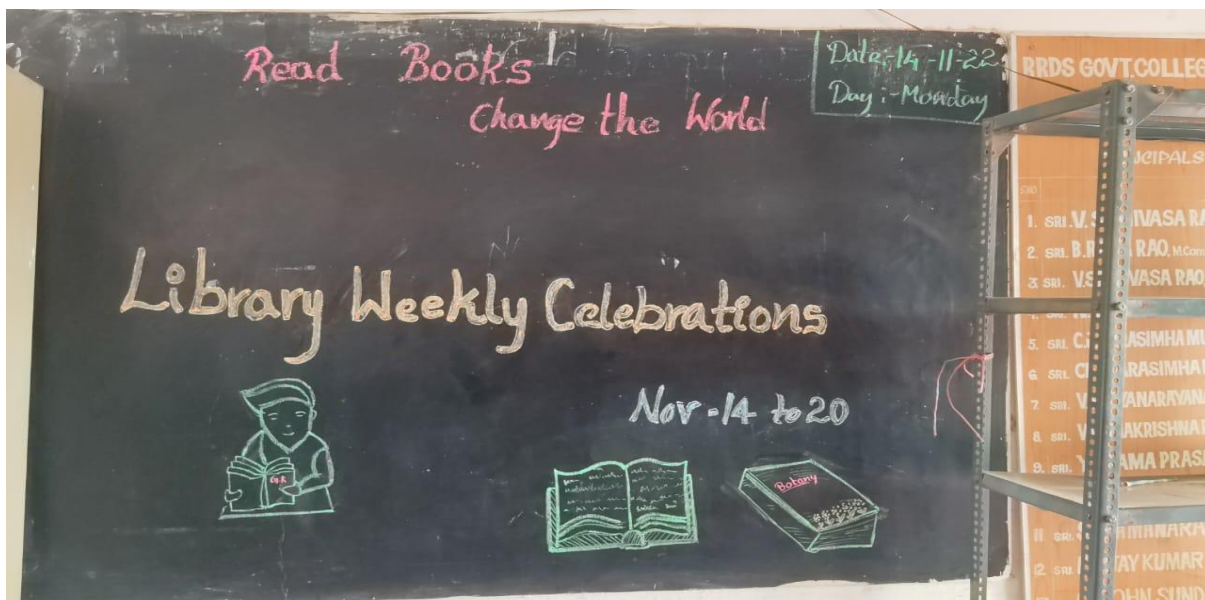 Read Books
Change the World
Date:-14-11-22
Day:-Monday
Library Weekly Celebrations
Nov-14 to 20
G.K
Botany
RRDS GOVT.COLLEG
CIPALS
SNO
1. SRI. V.S IVASA RA
2. SRI. B.R RAO, M.Com
3. SRI. V.S VASA RAO,
5. SRI. C. ASIMHA MU
6. SRI. CH ARASIMHA
7. SRI. V. YANARAYAN
8. SRI. V AKRISHNA
9. SRI. Y AMA PRAS
11 SRI. S MANARA
12. SRI. AY KUMAR
OHN SUND